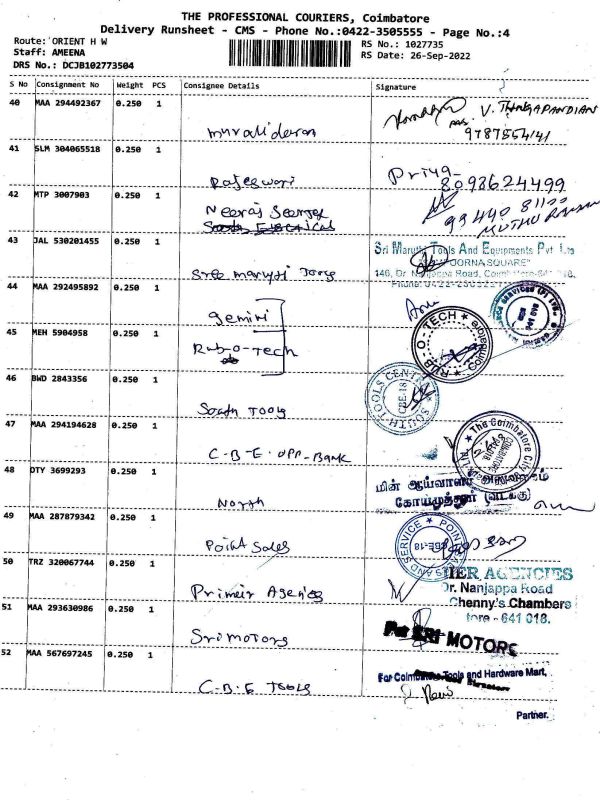 THE PROFESSIONAL COURIERS, Coimbatore
Delivery Runsheet - CMS - Phone No.:0422-3505555 - Page No.:4
Route: ORIENT H W
Staff: AMEENA
DRS No.: DCJB102773504
RS No.: 1027735
RS Date: 26-Sep-2022
S No Consignment No Weight PCS Consignee Details Signature
40 MAA 294492367 0.250 1
V. THNGAPANDIAN
9787554141
muralidaran
41 SLM 304065518 0.250 1
Rajeswari
Priya
8098624499
42 MTP 3007903 0.250 1
Neeraj George
99440 81100
MUTHU RAMAN
43 JAL 530201455 0.250 1
Sree maruti Tools
Sri Maruthi Tools And Equipments Pvt Ltd
"POORNA SQUARE"
146, Dr Nanjappa Road, Coimbatore-641 018.
44 MAA 292495892 0.250 1
gemini
45 MEH 5904958 0.250 1
Rub-o-Tech
RUB-O-TECH Coimbatore
46 BWD 2843356 0.250 1
South Tools
SOUTH TOOLS CENTRE
CBE-18
47 MAA 294194628 0.250 1
C-B-E OPP-BANK
The Coimbatore City
48 OTY 3699293 0.250 1
North
மின் ஆய்வாளர் அலுவலகம்
கோயமுத்தூர் (வடக்கு)
49 MAA 287879342 0.250 1
Point Sales
POINT SALES AND SERVICE
CBE-18
50 TRZ 320067744 0.250 1
Primeir Agencies
MIER AGENCIES
Dr. Nanjappa Road
Chenny's Chambers
tore - 641 018.
51 MAA 293630986 0.250 1
Sri motors
For SRI MOTORS
52 MAA 567697245 0.250 1
C-B-E Tools
For Coimbatore Tools and Hardware Mart,
Partner.